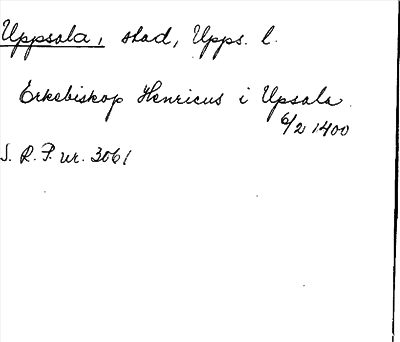 Uppsala, stad, Upps. l.
Erkebiskop Henricus i Upsala.
6/2 1400
S. R. P. nr. 3061